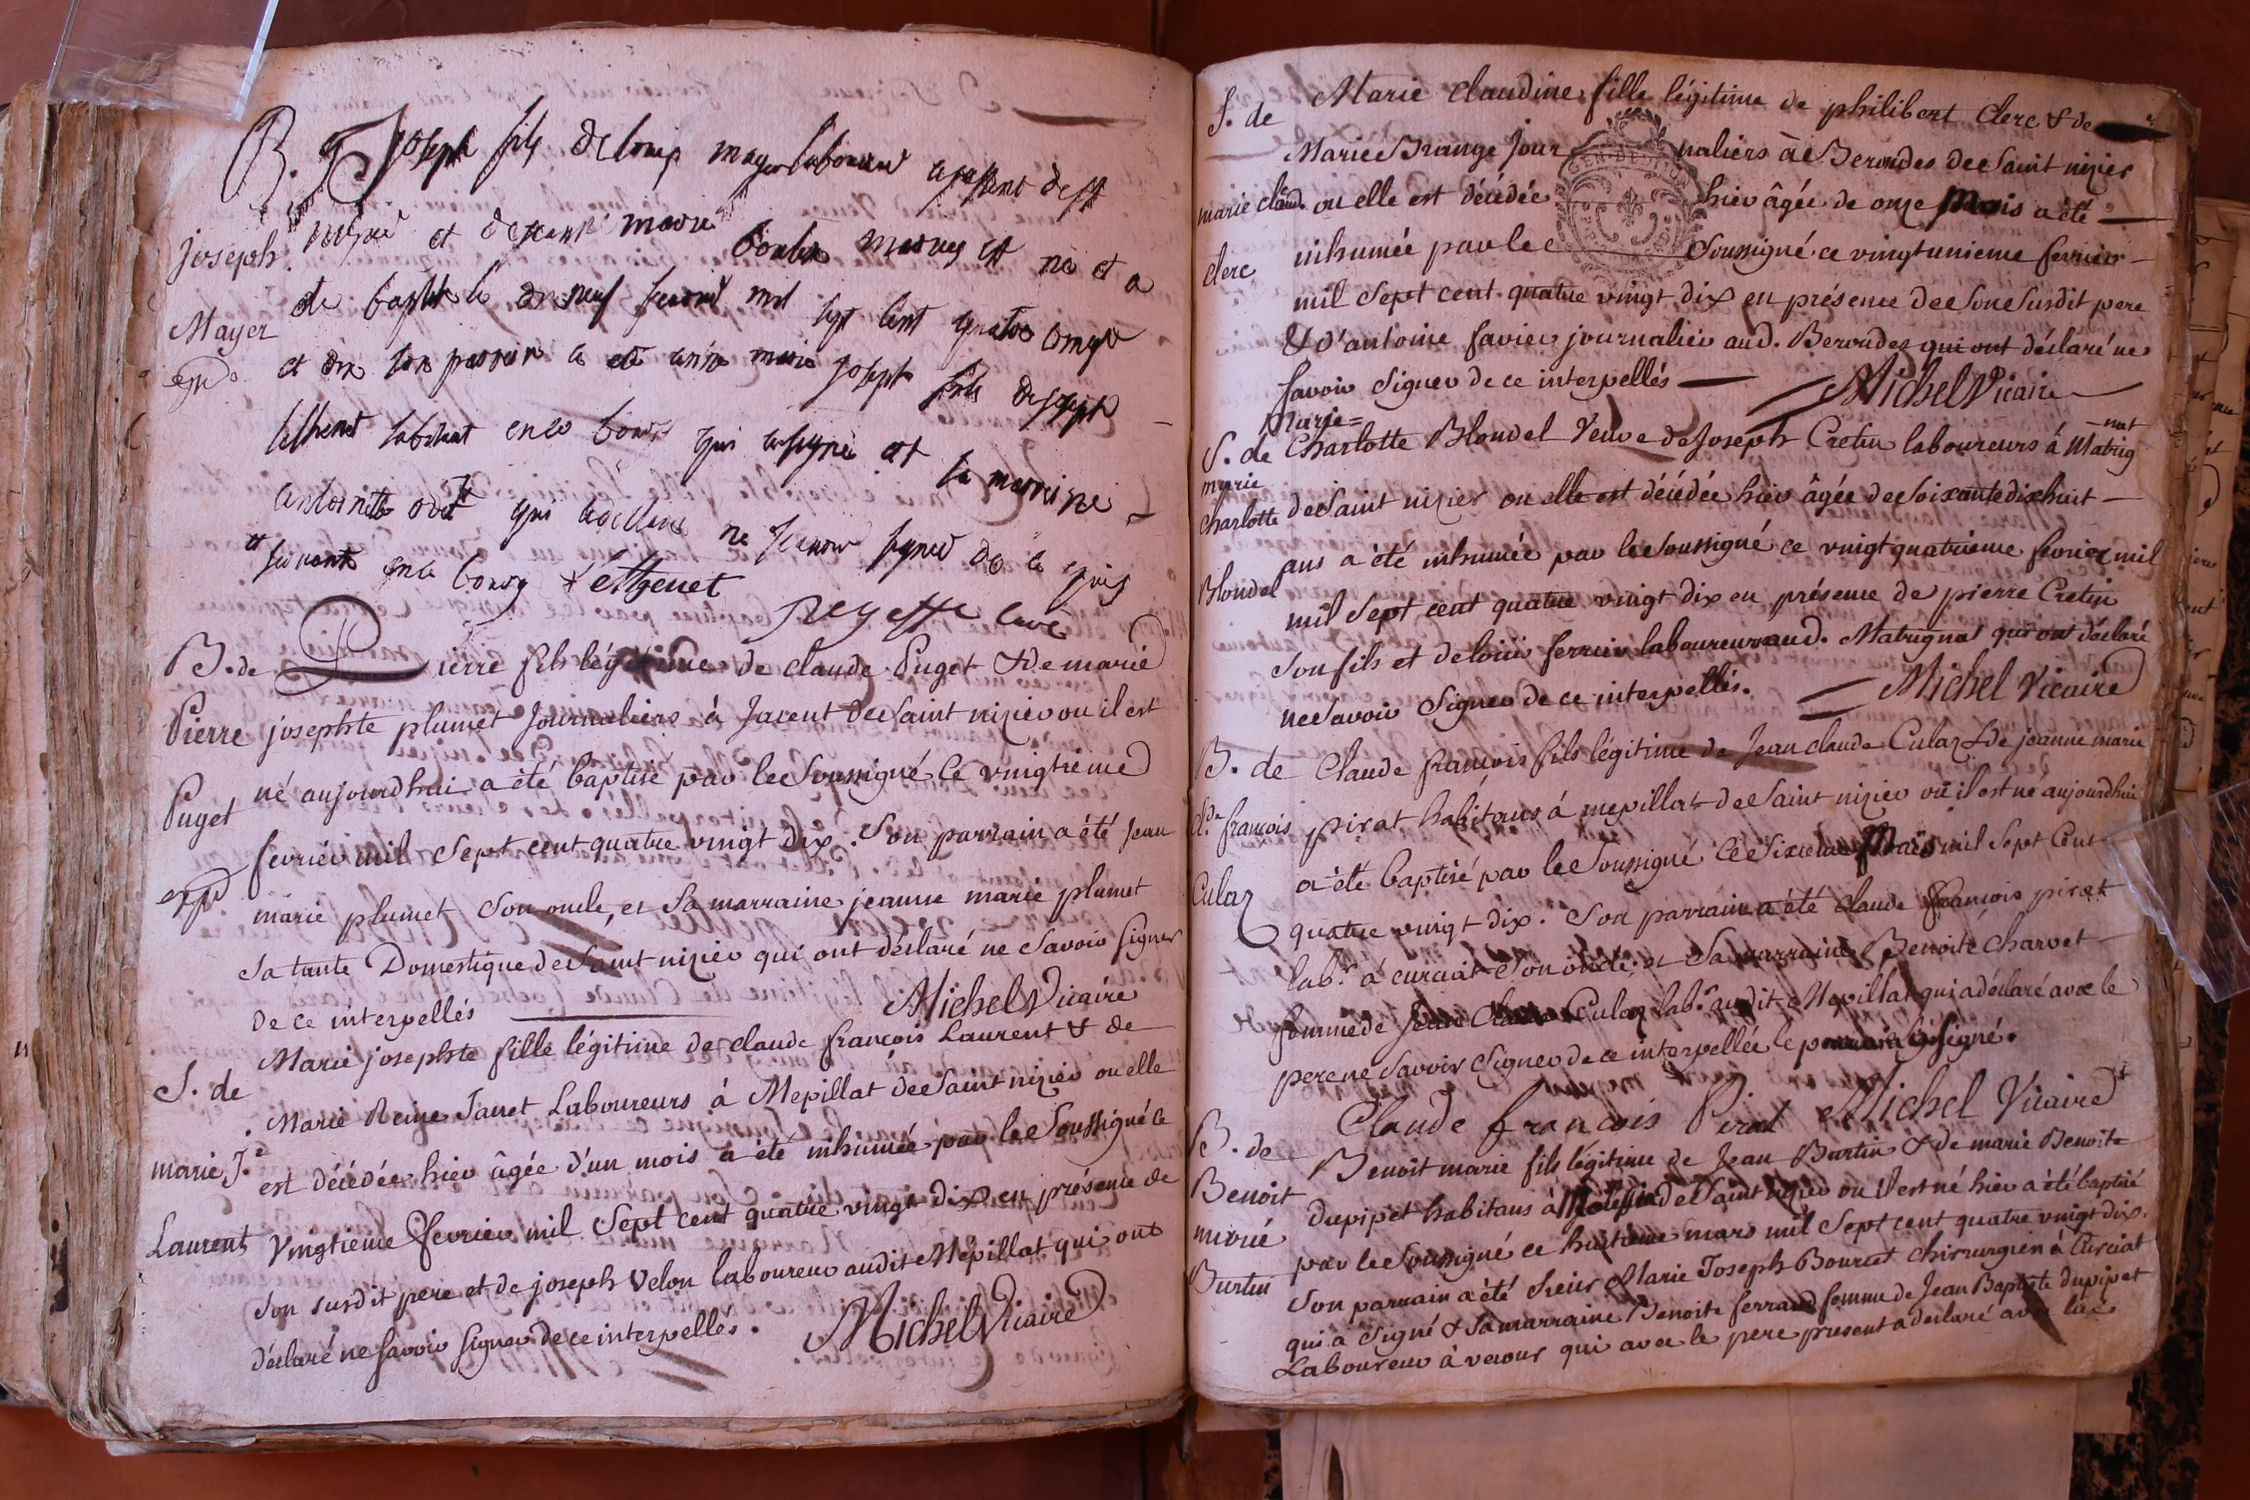 B.
Joseph
Mayer
exp.
Joseph fils de louis mayer laboureur
et de marie est né et a
été baptisé le dix neuf fevrier mil sept cent quatre vingt
et dix son parrain a été joseph fils de joseph
habitant en ce bourg qui a signé et la marraine
antoinette qui ne scavoir signer de ce
en ce bourg lethenet
curé
B. de
Pierre
Puget
expd
Pierre fils légitime de claude Puget & de marie
josephte plumet journaliers à Jacent de Saint nizier ou il est
né aujourdhui a été baptisé par le Soussigné ce vingtieme
fevrier mil Sept cent quatre vingt dix. Son parrain a été Jean
marie plumet Son oncle, et Sa marraine jeanne marie plumet
Sa tante Domestique de Saint nizier qui ont déclaré ne Savoir Signer
de ce interpellés Michel Vicaire
S. de
marie J.e
Laurent
Marie josephte fille légitime de claude françois Laurent & de
Marie Reine Janet Laboureurs à Mepillat de Saint nizier ou elle
est décédée hier âgée d'un mois a été inhumée par le Soussigné ce
vingtieme fevrier mil Sept cent quatre vingt dix en présence de
Son susdit pere et de joseph Velon laboureur audit Mépillat qui ont
déclaré ne Savoir Signer de ce interpellés. Michel Vicaire
S. de
marie claud.e
clerc
Marie claudine fille légitime de philibert Clerc & de
Marie Brange journaliers à Beroudes de Saint nizier
ou elle est décédée hier âgée de onze Mois a été
inhumée par le Soussigné ce vingtunieme fevrier
mil Sept cent quatre vingt dix en présence de Son Susdit pere
& d'antoine favier journalier aud. Beroudes qui ont déclaré ne
Savoir Signer de ce interpellés Michel Vicaire
S. de
marie
charlotte
Blondel
Marie=
Charlotte Blondel Veuve de Joseph Cretin laboureurs à Matrignat
de Saint nizier ou elle est décédée hier âgée de Soixante dix huit
ans a été inhumée par le Soussigné ce vingt quatrieme fevrier mil
mil Sept cent quatre vingt dix en présence de pierre Cretin
Son fils et de louis ferrier laboureurs aud. Matrignat qui ont déclaré
ne Savoir Signer de ce interpellés. Michel Vicaire
B. de
cl.de françois
Culaz
Claude françois fils légitime de Jean claude Culaz & de jeanne marie
pirat habitans à mepillat de Saint nizier ou il est né aujourdhui
a été baptisé par le Soussigné ce Sixieme Mars mil Sept Cent
quatre vingt dix. Son parrain a été claude françois pirat
lab.r à curciat Son oncle, et Sa marraine Benoite Charvet
femme de Jean Claude Culaz lab.r audit Mepillat qui a déclaré avec le
pere ne Savoir Signer de ce interpellée le parrain a Signé.
Claude françois Pirat Michel Vicaire
B. de
Benoit
marie
Burtin
Benoit marie fils légitime de Jean Burtin & de marie Benoite
dupipet habitans à de Saint nizier ou il est né hier a été baptisé
par le Soussigné ce huitieme mars mil Sept cent quatre vingt dix.
Son parrain a été Sieur Marie Joseph Bourcet chirurgien à Curciat
qui a Signé & Sa marraine Benoite ferrand femme de Jean Baptiste dupipet
Laboureur à verour qui avec le pere present a déclaré